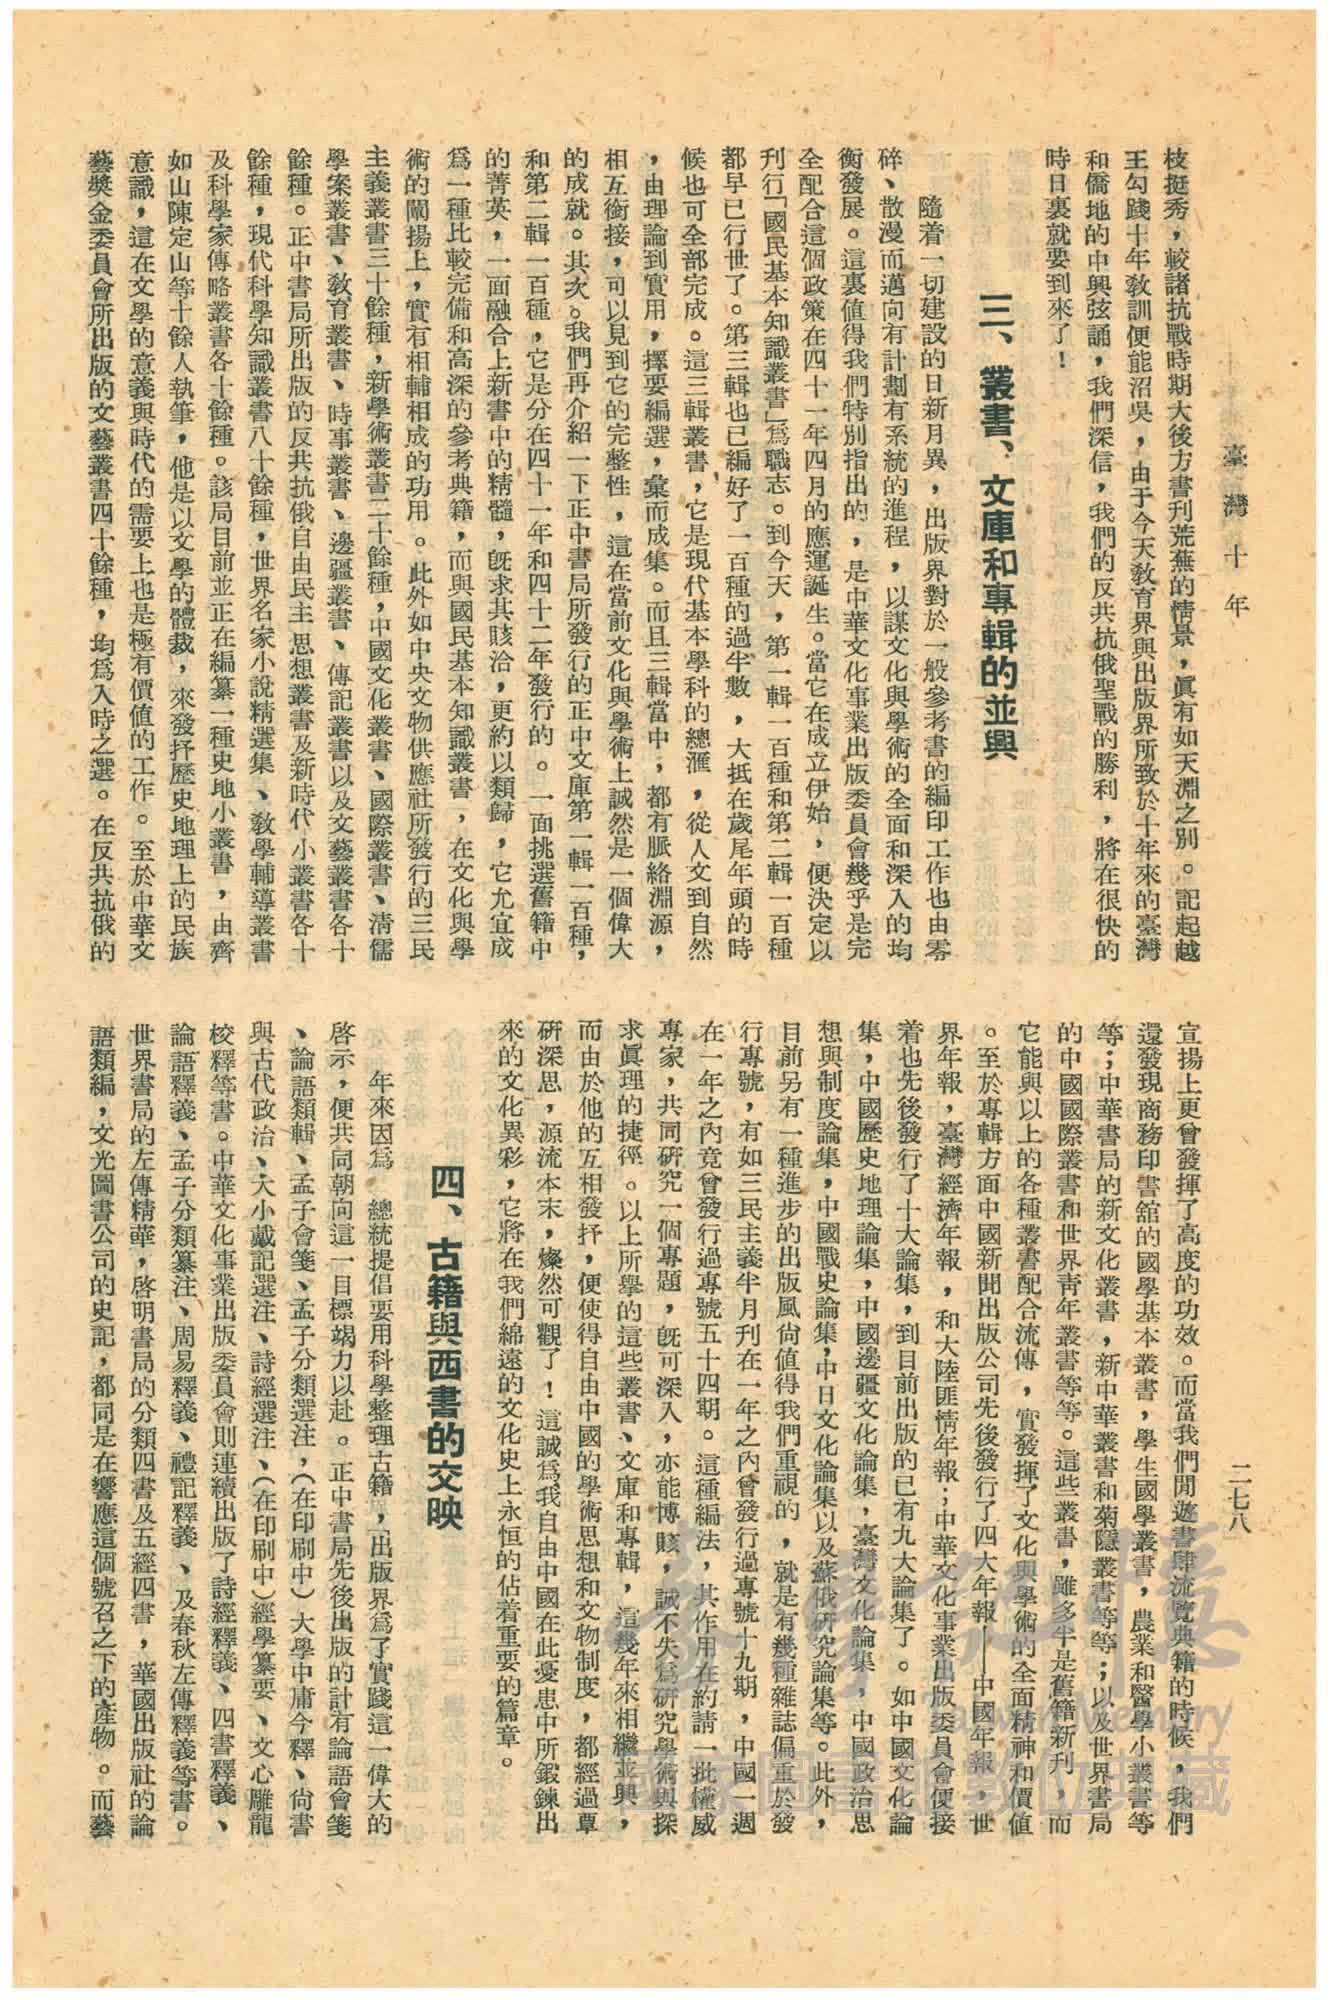 臺灣十年
二七八
枝挺秀，較諸抗戰時期大後方書刊荒蕪的情景，眞有如天淵之別。記起越
王勾踐十年敎訓便能沼吳，由于今天敎育界與出版界所致於十年來的臺灣
和僑地的中興弦誦，我們深信，我們的反共抗俄聖戰的勝利，將在很快的
時日裏就要到來了！
三、叢書、文庫和專輯的並興
隨着一切建設的日新月異，出版界對於一般參考書的編印工作也由零
碎、散漫而邁向有計劃有系統的進程，以謀文化與學術的全面和深入的均
衡發展。這裏值得我們特別指出的，是中華文化事業出版委員會幾乎是完
全配合這個政策在四十一年四月的應運誕生。當它在成立伊始，便決定以
刊行「國民基本知識叢書」爲職志。到今天，第一輯一百種和第二輯一百種
都早已行世了。第三輯也已編好了一百種的過半數，大抵在歲尾年頭的時
候也可全部完成。這三輯叢書，它是現代基本學科的總滙，從人文到自然
，由理論到實用，擇要編選，彙而成集。而且三輯當中，都有脈絡淵源，
相互銜接，可以見到它的完整性，這在當前文化與學術上誠然是一個偉大
的成就。其次。我們再介紹一下正中書局所發行的正中文庫第一輯一百種，
和第二輯一百種，它是分在四十一年和四十二年發行的。一面挑選舊籍中
的菁英，一面融合上新書中的精髓，旣求其賅洽，更約以類歸，它允宜成
爲一種比較完備和高深的參考典籍，而與國民基本知識叢書，在文化與學
術的闡揚上，實有相輔相成的功用。此外如中央文物供應社所發行的三民
主義叢書三十餘種，新學術叢書二十餘種，中國文化叢書、國際叢書、淸儒
學案叢書、敎育叢書、時事叢書、邊疆叢書、傳記叢書以及文藝叢書各十
餘種。正中書局所出版的反共抗俄自由民主思想叢書及新時代小叢書各十
餘種，現代科學知識叢書八十餘種，世界名家小說精選集、敎學輔導叢書
及科學家傳略叢書各十餘種。該局目前並正在編纂一種史地小叢書，由齊
如山陳定山等十餘人執筆，他是以文學的體裁，來發抒歷史地理上的民族
意識，這在文學的意義與時代的需要上也是極有價值的工作。至於中華文
藝獎金委員會所出版的文藝叢書四十餘種，均爲入時之選。在反共抗俄的
宣揚上更曾發揮了高度的功效。而當我們閒遊書肆流覽典籍的時候，我們
還發現商務印書舘的國學基本叢書，學生國學叢書，農業和醫學小叢書等
等；中華書局的新文化叢書，新中華叢書和菊隱叢書等等；以及世界書局
的中國國際叢書和世界靑年叢書等等。這些叢書，雖多半是舊籍新刊，而
它能與以上的各種叢書配合流傳，實發揮了文化與學術的全面精神和價値
。至於專輯方面中國新聞出版公司先後發行了四大年報——中國年報，世
界年報，臺灣經濟年報，和大陸匪情年報；中華文化事業出版委員會便接
着也先後發行了十大論集，到目前出版的已有九大論集了。如中國文化論
集，中國歷史地理論集，中國邊疆文化論集，臺灣文化論集，中國政治思
想與制度論集，中國戰史論集，中日文化論集以及蘇俄研究論集等。此外，
目前另有一種進步的出版風尙值得我們重視的，就是有幾種雜誌偏重於發
行專號，有如三民主義半月刊在一年之內曾發行過專號十九期，中國一週
在一年之內竟曾發行過專號五十四期。這種編法，其作用在約請一批權威
專家，共同研究一個專題，旣可深入，亦能博賅，誠不失爲研究學術與探
求眞理的捷徑。以上所舉的這些叢書、文庫和專輯，這幾年來相繼並興，
而由於他的互相發抒，便使得自由中國的學術思想和文物制度，都經過覃
研深思，源流本末，燦然可觀了！這誠爲我自由中國在此憂患中所鍛鍊出
來的文化異彩，它將在我們綿遠的文化史上永恒的佔着重要的篇章。
四、古籍與西書的交映
年來因爲　總統提倡要用科學整理古籍，出版界爲了實踐這一偉大的
啓示，便共同朝向這一目標竭力以赴。正中書局先後出版的計有論語會箋
、論語類輯、孟子會箋、孟子分類選注，（在印刷中）大學中庸今釋、尙書
與古代政治、大小戴記選注、詩經選注、（在印刷中）經學纂要、文心雕龍
校釋等書。中華文化事業出版委員會則連續出版了詩經釋義、四書釋義、
論語釋義、孟子分類纂注、周易釋義、禮記釋義、及春秋左傳釋義等書。
世界書局的左傳精華，啓明書局的分類四書及五經四書，華國出版社的論
語類編，文光圖書公司的史記，都同是在響應這個號召之下的產物。而藝
臺灣記憶
Taiwan Memory
國家圖書館數位典藏